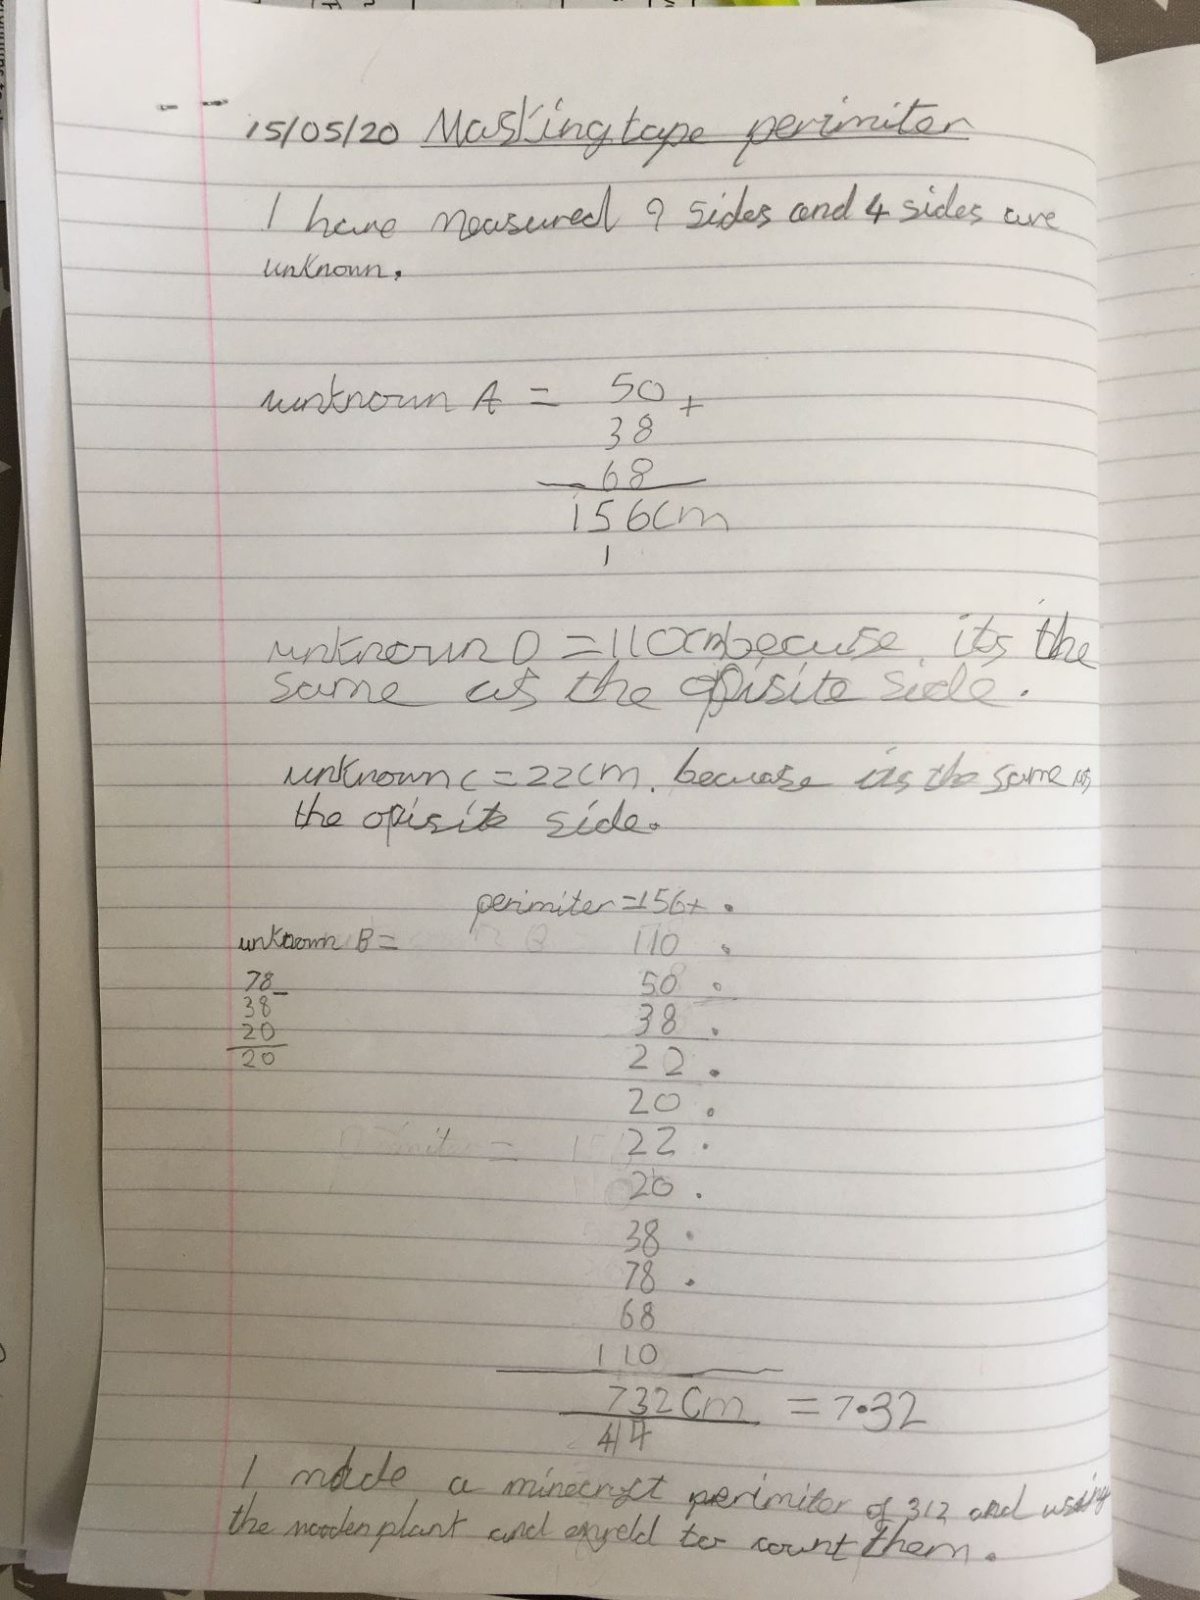 15/05/20 Masking tape perimiter
I have measured 9 sides and 4 sides are
unknown.
unknown A = 50 +
38
68
156cm
1
unknown D = 110cm becuse its the
same as the opisite side.
unknown c = 22cm. becuase its the same as
the opisite side.
perimiter = 156+ .
unknown B = 110 .
78 - 50 .
38 38 .
20 22 .
20 20 .
22 .
20 .
38 .
78 .
68
110
732cm = 7.32
44
I made a minecraft perimiter of 312 and using
the wooden plant and to count them.